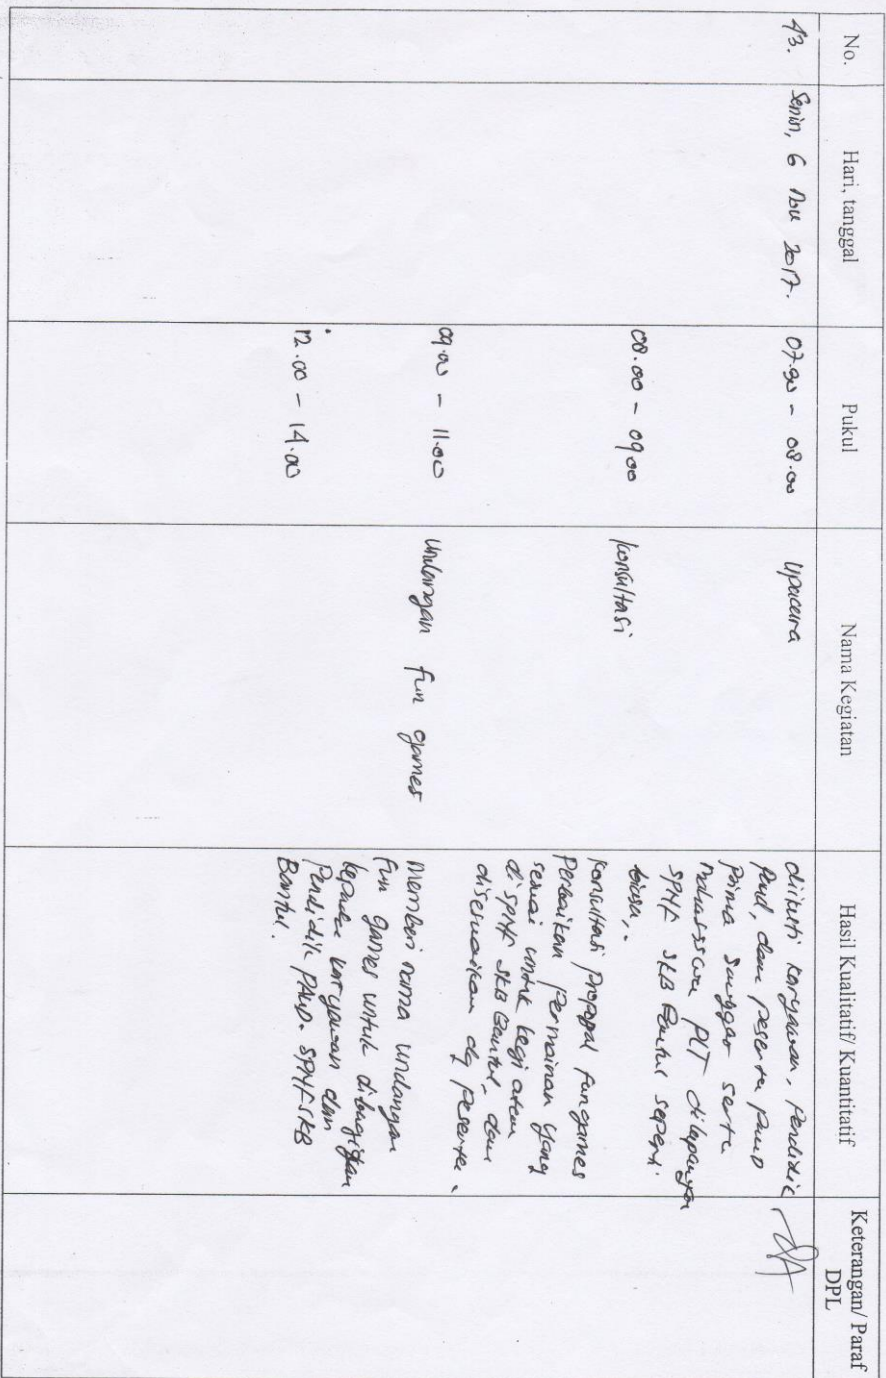 No.
Hari, tanggal
Pukul
Nama Kegiatan
Hasil Kualitatif/ Kuantitatif
Keterangan/ Paraf
DPL
43.
Senin, 6 Nov 2017.
07.30 - 08.00
Upacara
diikuti karyawan, Pendidik
Paud, dan peserta paud
prima sanggar serta
mahasiswa PLT dilapangan
SPNF SKB Bantul seperti
biasa,.
08.00 - 09.00
konsultasi
konsultasi proposal fun games
Perbaikan permainan yang
sesuai untuk kegiatan
di SPNF SKB Bantul, dan
disesuaikan dg peserta.
09.00 - 11.00
Undangan fun games
Memberi nama undangan
fun games untuk dibagikan
kepada karyawan dan
Pendidik PAUD. SPNF SKB
Bantul.
12.00 - 14.00